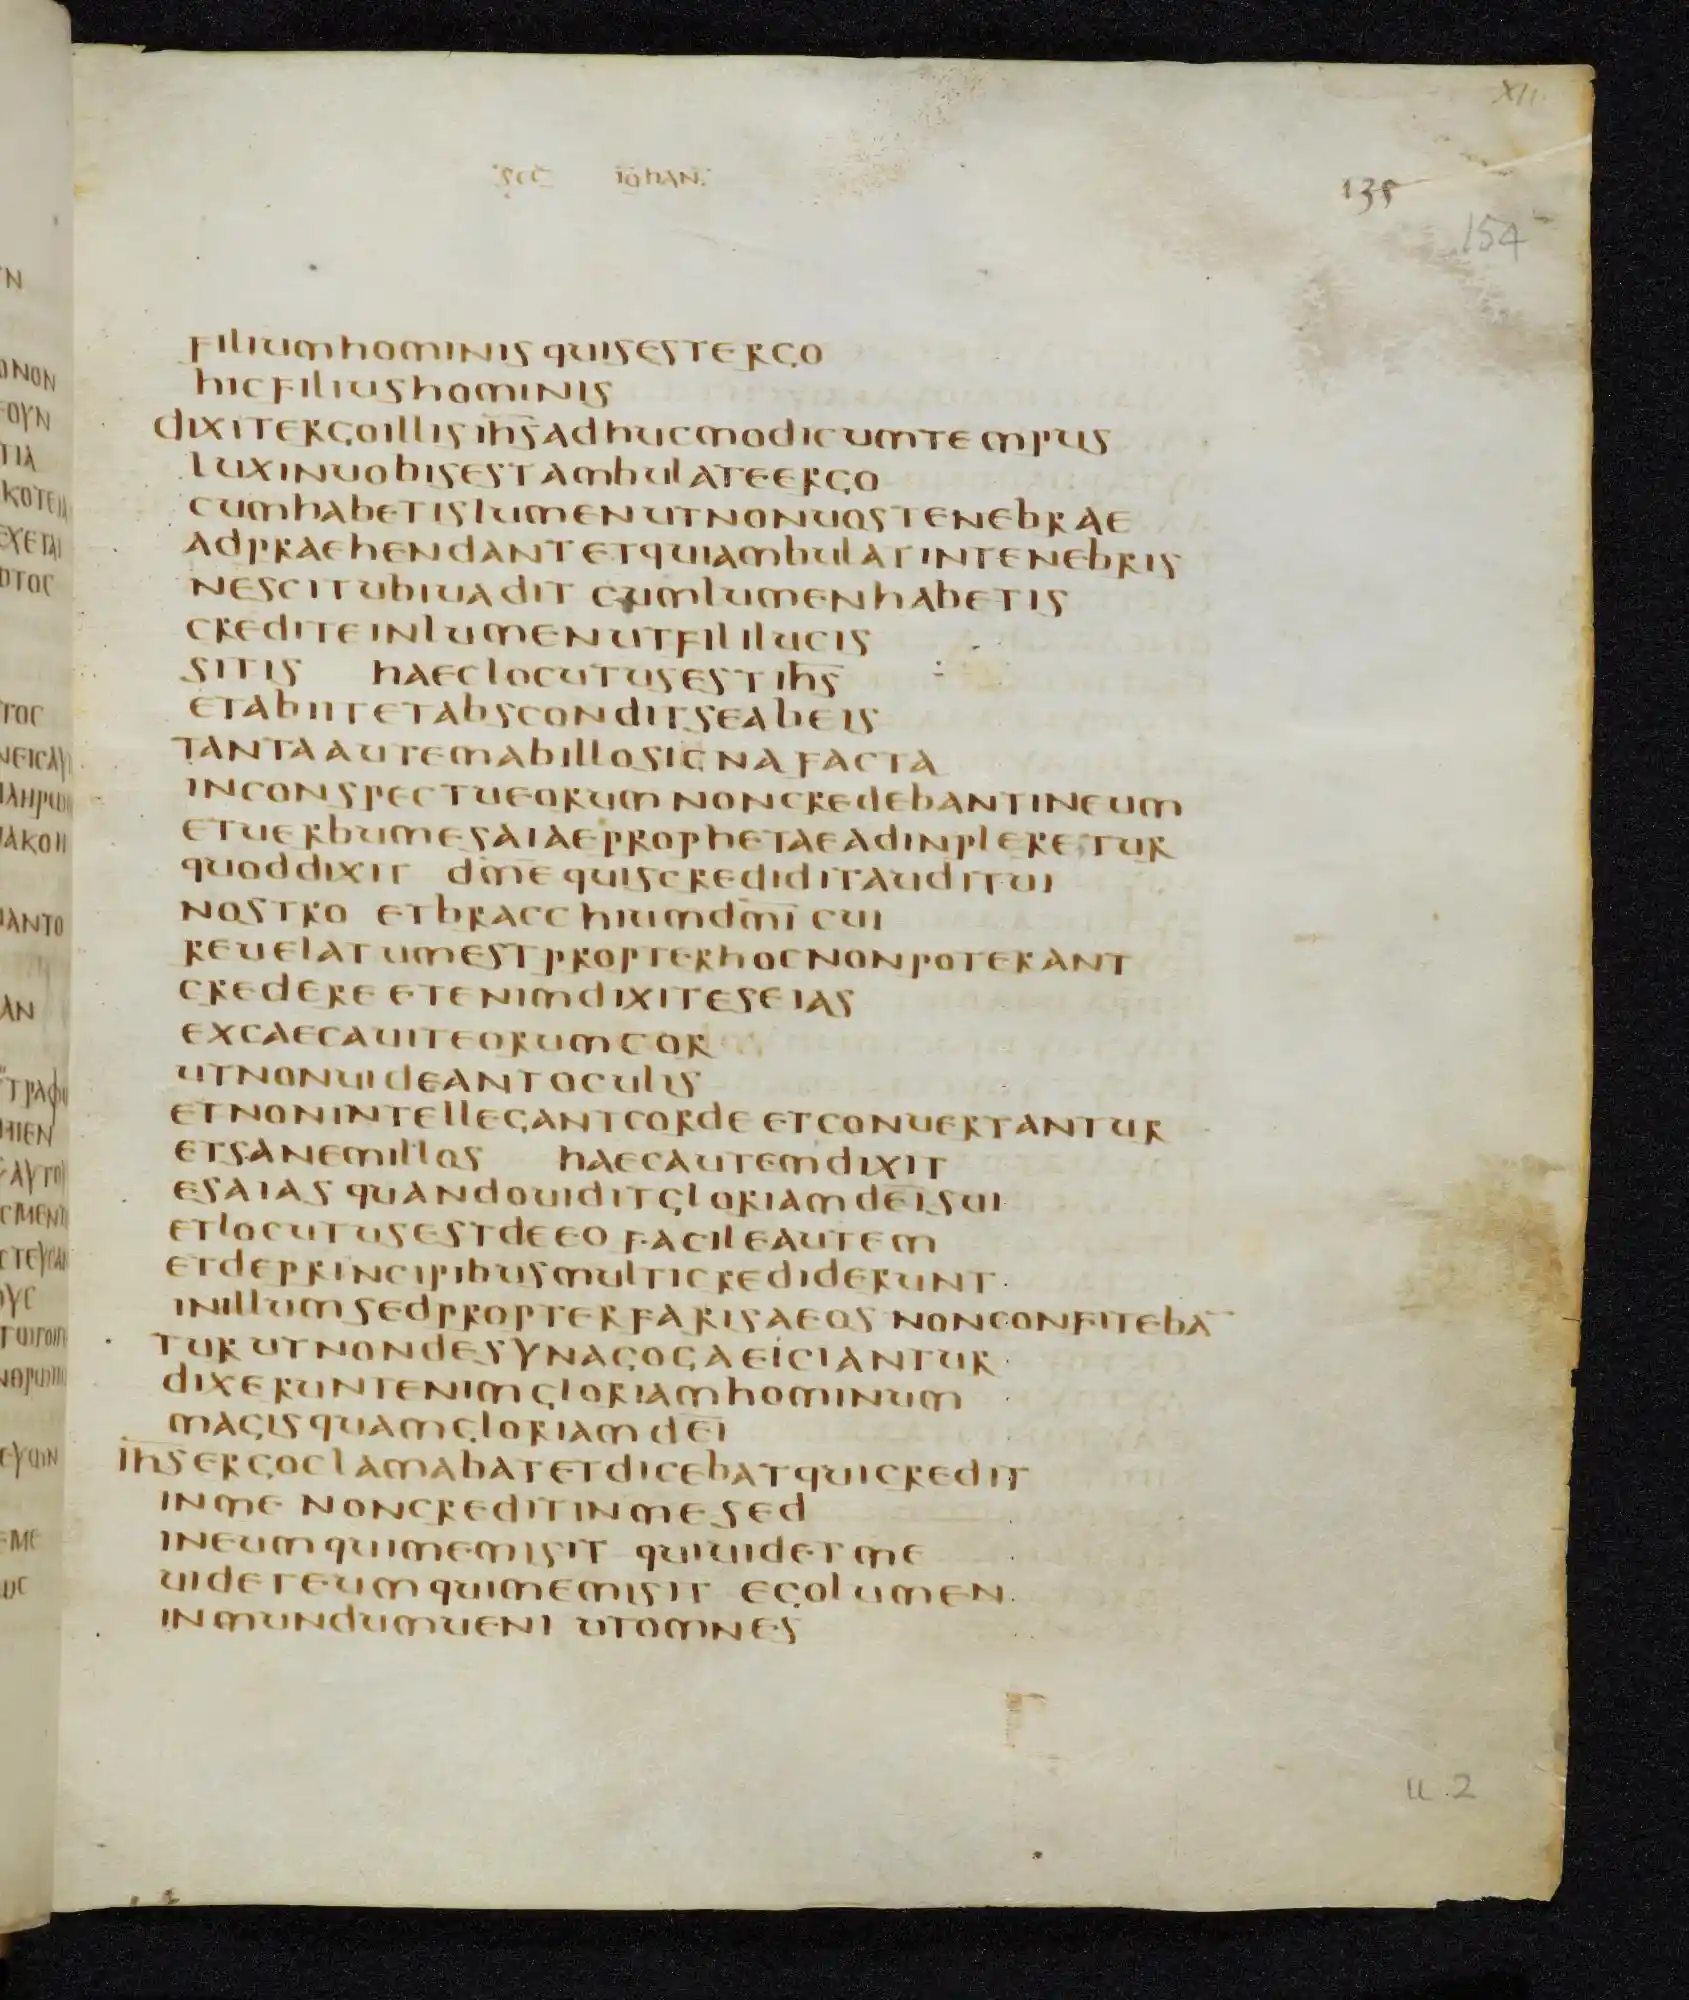 XII
sec iohan
135
154
filium hominis quis est ergo
hic filius hominis
dixit ergo illis ihs̅ adhuc modicum tempus
lux in uobis est ambulate ergo
cum habetis lumen ut non uos tenebrae
adpraehendant et qui ambulat in tenebris
nescit ubi uadit cum lumen habetis
credite in lumen ut fili lucis
sitis haec locutus est ihs̅
et abiit et abscondit se ab eis
tanta autem ab illo signa facta
in conspectu eorum non credebant in eum
et uerbum esaiae prophetae adinpleretur
quod dixit dm̅e quis credidit auditui
nostro et bracchium dm̅i cui
reuelatum est propter hoc non poterant
credere etenim dixit eseias
excaecauit eorum cor
ut non uideant oculis
et non intellegant corde et conuertantur
et sanem illos haec autem dixit
esaias quando uidit gloriam dei sui
et locutus est de eo facile autem
et de principibus multi crediderunt
in illum sed propter farisaeos non confiteba̅
tur ut non de synagoga eiciantur
dixerunt enim gloriam hominum
magis quam gloriam dei
ihs̅ ergo clamabat et dicebat qui credit
in me non credit in me sed
in eum qui me misit qui uidet me
uidet eum qui me misit ego lumen
in mundum ueni ut omnes
u.2